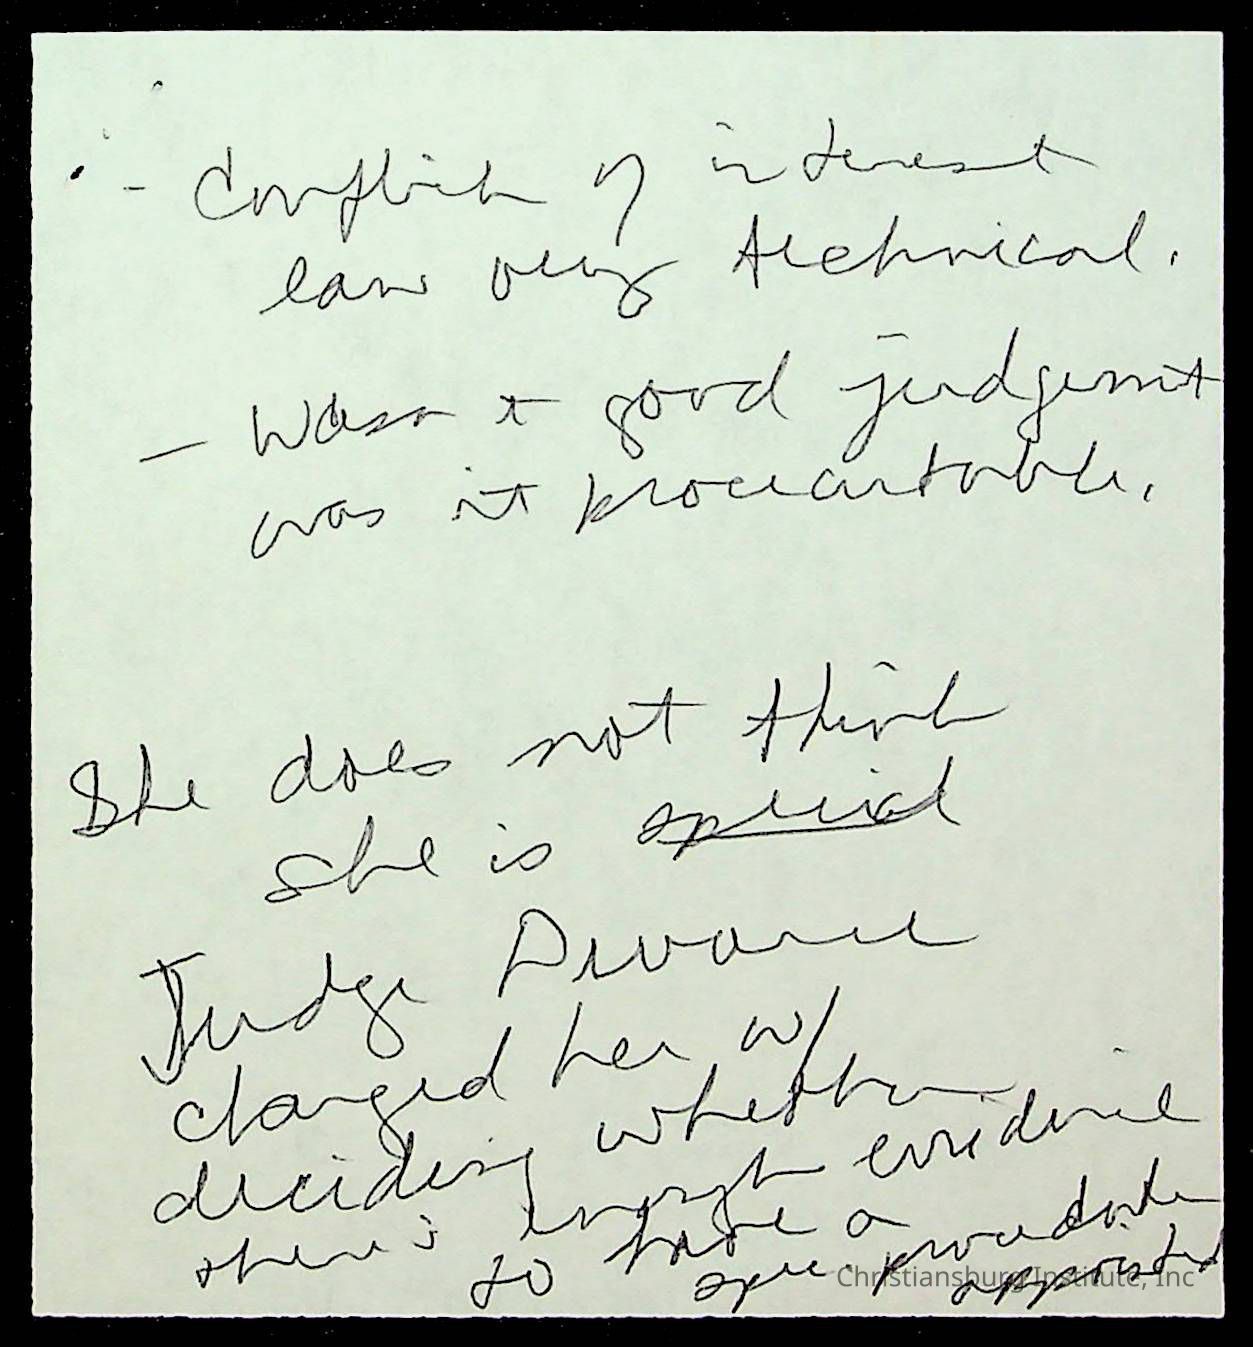 - Conflict of interest
law very technical.
- Wasn't good judgemnt
was it procecutable.
She does not think
she is special
Judge Devore
charged her w/
deciding whether
there is enough evidence
to have a
spec. appointed
Christiansburg Institute, Inc